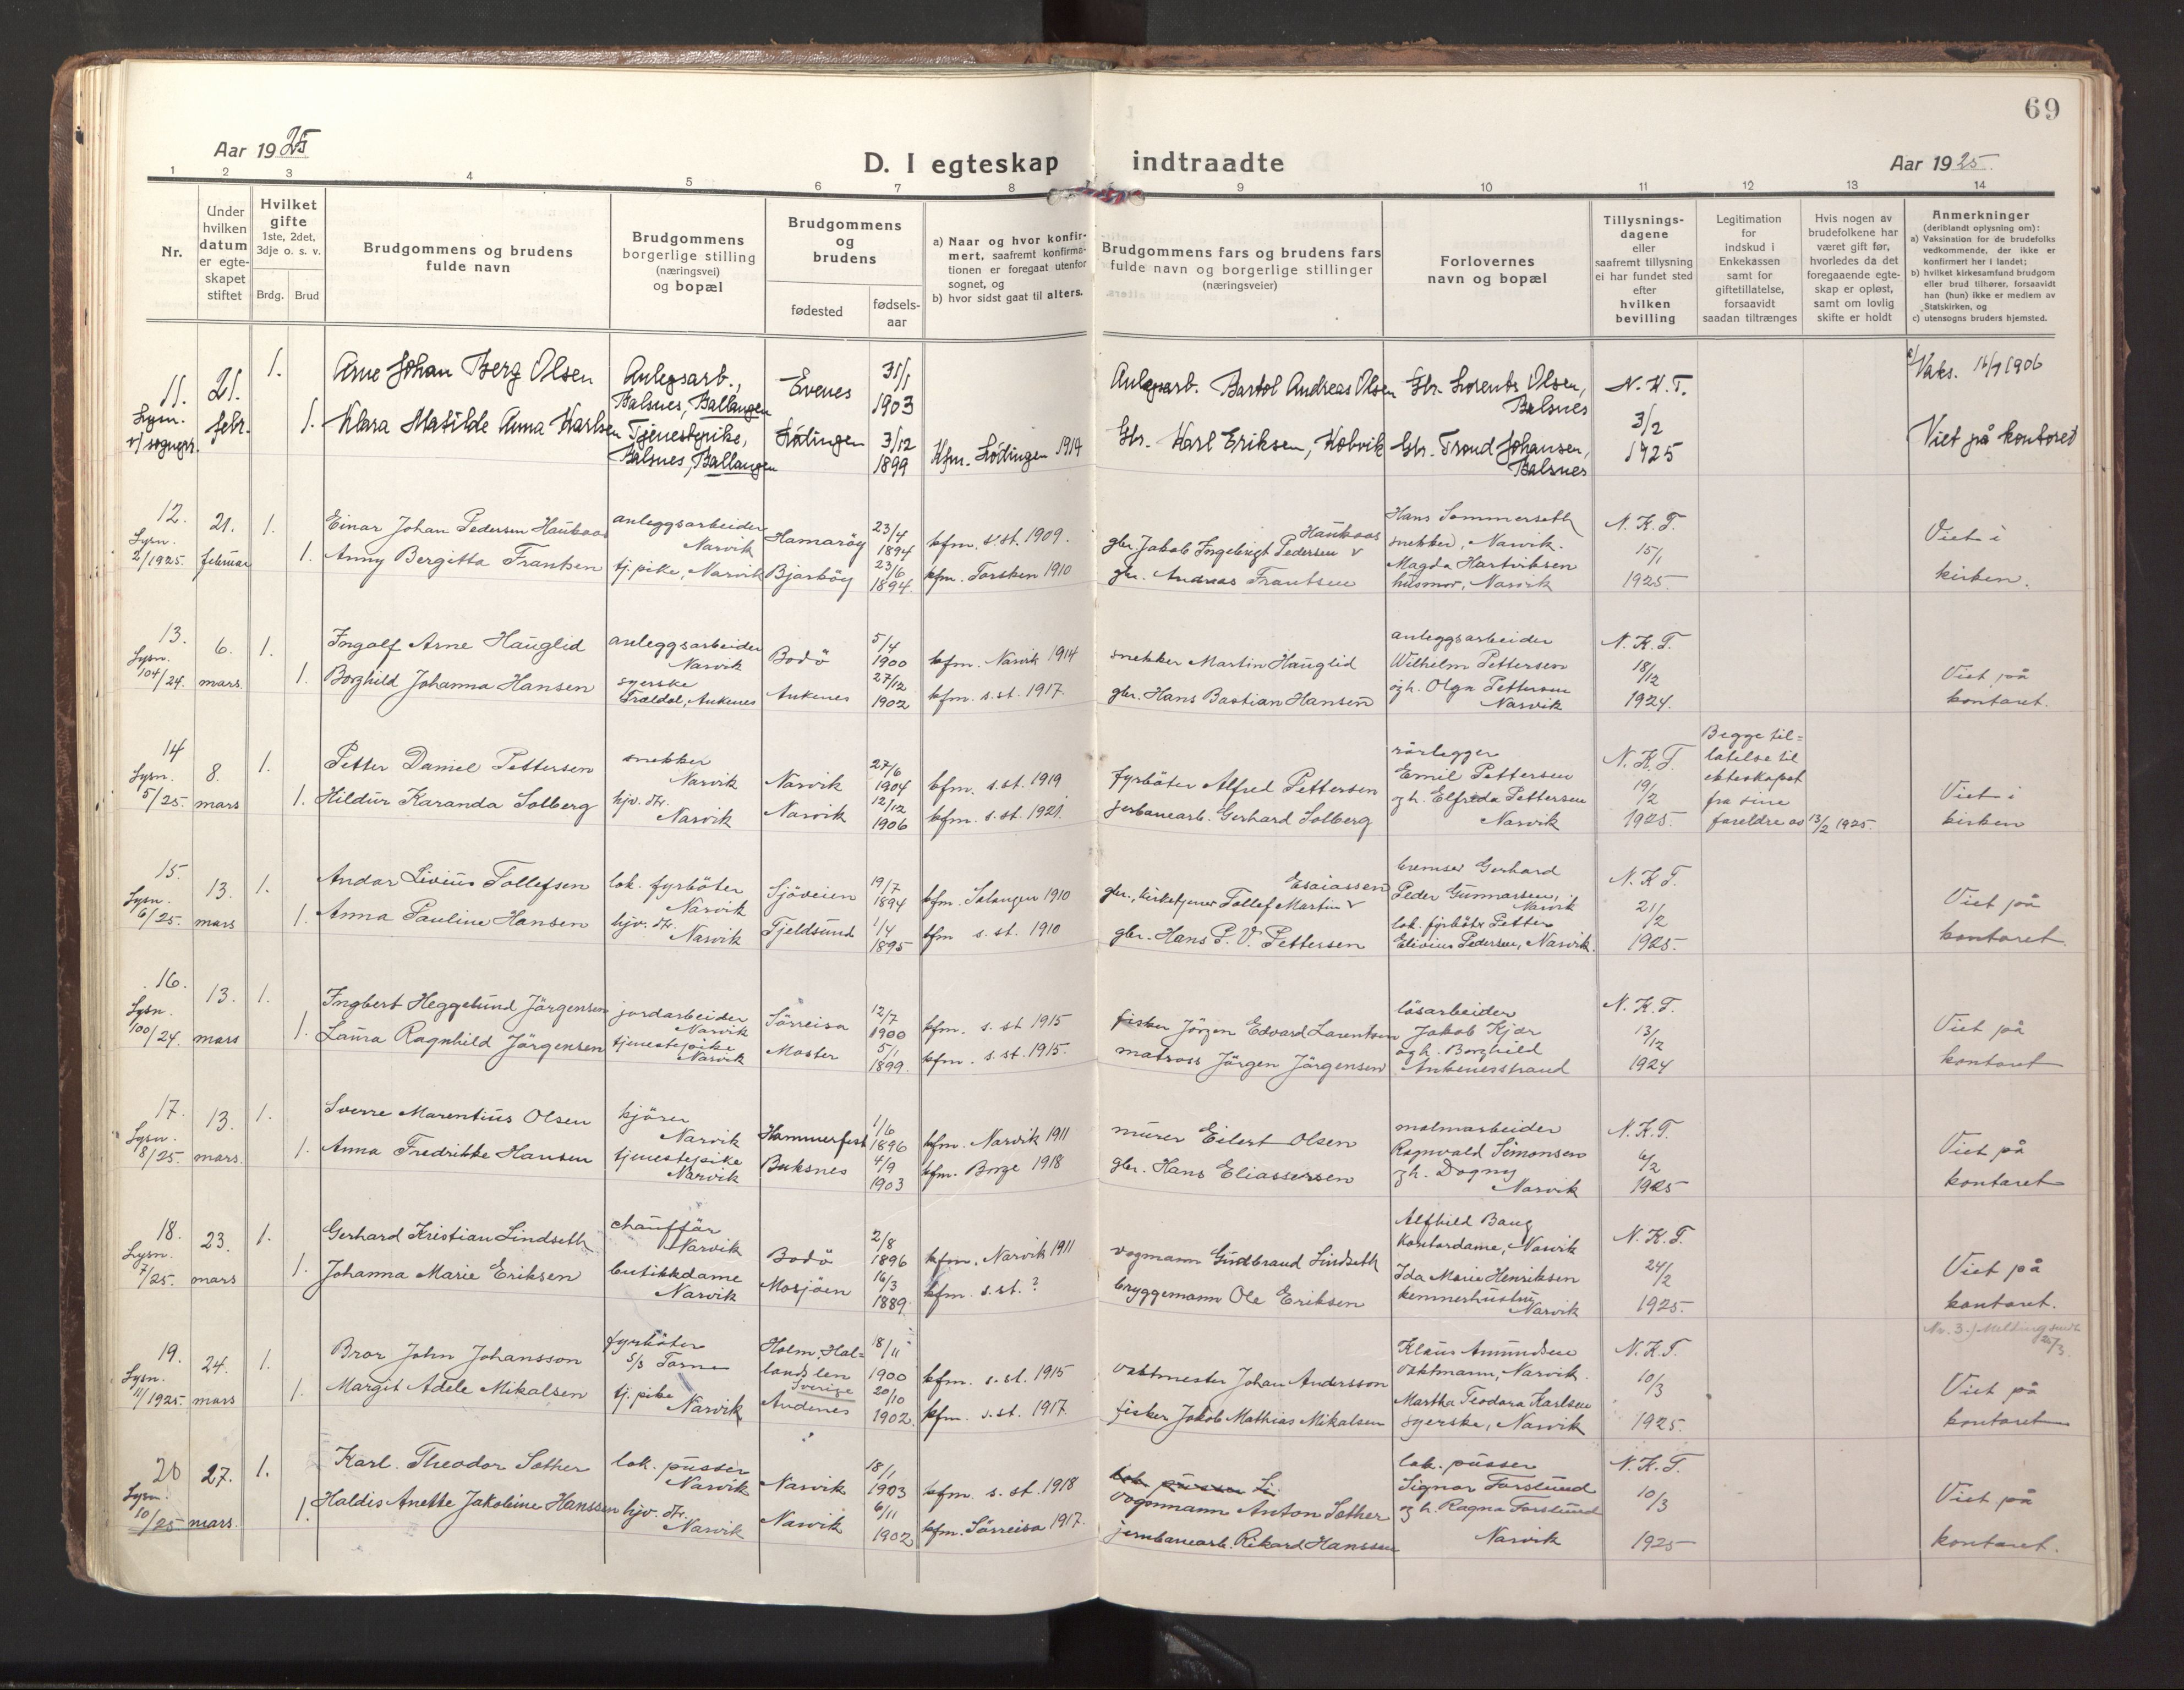 69
Aar 1925
D. I egteskap indtraadte
Aar 1925.
1 2 3 4 5 6 7 8 9 10 11 12 13 14
Nr.
Under hvilken datum er egteskapet stiftet
Hvilket gifte 1ste, 2det, 3dje o. s. v.
Brdg. Brud
Brudgommens og brudens fulde navn
Brudgommens borgerlige stilling (næringsvei) og bopæl
Brudgommens og brudens
fødested
fødsels-aar
a) Naar og hvor konfir-
mert, saafremt konfirma-
tionen er foregaat utenfor
sognet, og
b) hvor sidst gaat til alters.
Brudgommens fars og brudens fars
fulde navn og borgerlige stillinger
(næringsveier)
Forlovernes
navn og bopæl
Tillysnings-
dagene
eller
saafremt tillysning
ei har fundet sted
efter
hvilken
bevilling
Legitimation
for
indskud i
Enkekassen
samt for
giftetillatelse,
forsaavidt
saadan tiltrænges
Hvis nogen av
brudefolkene har
været gift før,
hvorledes da det
foregaaende egte-
skap er opløst,
samt om lovlig
skifte er holdt
Anmerkninger
(deriblandt oplysning om):
a) Vaksination for de brudefolks
vedkommende, der ikke er
konfirmert her i landet;
b) hvilket kirkesamfund brudgom
eller brud tilhører, forsaavidt
han (hun) ikke er medlem av
Statskirken, og
c) utensogns bruders hjemsted.
11. Lysn. v/ sognepr.
21. febr.
1. Arne Johan Berg Olsen
Anlegsarb., Balsnes, Ballangen
Evenes
31/1 1903
Anlegsarb. Bartol Andreas Olsen
Gbr. Lorents Olsen, Balsnes
N. K. T. 3/2 1925
a/ Vaks. 16/9 1906
1. Klara Matilde Anna Karlsen
Tjenestepike, Balsnes, Ballangen
Lödingen
3/12 1899
Kfm. Lödingen 1914
Gbr. Karl Eriksen, Kobvik
Gbr. Trond Johansen, Balsnes
Viet på kontoret
12. Lysn. 2/1925.
21. februar
1. Einar Johan Pedersen Haukaas
anleggsarbeider Narvik
Hamaröy
23/4 1894
kfm. s. st. 1909.
gbr. Jakob Ingebrigt Pedersen Haukaas
Hans Sommerseth snekker, Narvik.
N. K. T. 15/1 1925.
1. Anny Bergitta Frantsen
tj. pike, Narvik
Bjarköy
23/6 1894.
kfm. Torsken 1910
gbr. Andreas Frantsen
Magda Hartviksen husmor, Narvik
Viet i kirken.
13. Lysn. 104/24.
6. mars.
1. Ingolf Arne Hauglid
anleggsarbeider Narvik
Bodö
5/4 1900
kfm. Narvik 1914
snekker Martin Hauglid
anleggsarbeider Wilhelm Pettersen
N. K. T. 18/12 1924.
1. Borghild Johanna Hansen
syerske Fraldal, Ankenes
Ankenes
27/12 1902
kfm. s. st. 1917.
gbr. Hans Bastian Hansen
og h. Olga Pettersen Narvik
Viet på kontoret.
14 Lysn. 5/25.
8. mars
1. Petter Daniel Pettersen
snekker Narvik
Narvik
27/6 1904
kfm. s. st. 1919
fyrböter Alfred Pettersen
rörlegger Emil Pettersen
N. K. T. 19/2 1925.
Begge til=
latelse til
ekteskapet
fra sine
foreldre av 13/2 1925.
1. Hildur Karanda Solberg
hjv. dtr. Narvik
Narvik
12/12 1906
kfm. s. st. 1921.
jernbanearb. Gerhard Solberg
og h. Elfrida Pettersen Narvik
Viet i kirken
15. Lysn. 6/25.
13. mars
1. Andor Livius Tollefsen
lok. fyrböter Narvik
Sjöveien
19/7 1894
kfm. Salangen 1910
gbr., kirketjener Tollef Martin Esaiassen
bremser Gerhard Peder Gunnarsen, Narvik
N. K. T. 21/2 1925.
1. Anna Pauline Hansen
hjv. dtr. Narvik
Tjeldsund
1/4 1895
kfm s. st. 1910
gbr. Hans P. V. Pettersen
lok. fyrböter Petter Elivius Pedersen, Narvik.
Viet på kontoret.
16. Lysn. 100/24.
13. mars
1. Ingbert Heggelund Jörgensen
jordarbeider Narvik
Sörreisa
12/7 1900
kfm. s. st 1915
fisker Jörgen Edvard Larentsen
lösarbeider Jakob Kjær
N. K. T. 13/12 1924
1. Laura Ragnhild Jörgensen
tjenestepike Narvik
Moster
5/1 1899.
kfm. s. st. 1915.
matros Jörgen Jörgensen
og h. Borghild Ankenesstrand
Viet på kontoret
17. Lysn. 8/25.
13. mars.
1. Sverre Marentius Olsen
kjörer Narvik
Hammerfest
1/6 1896
kfm. Narvik 1911
murer Eilert Olsen
malmarbeider Ragnvald Simonsen
N. K. T. 6/2 1925
1. Anna Fredrikke Hansen
tjenestepike Narvik
Buksnes
4/9 1903
kfm. Borge 1918
gbr. Hans Eliassersen
og h. Dagny Narvik
Viet på kontoret
18. Lysn. 7/25.
23. mars
1. Gerhard Kristian Lindseth
chauffär Narvik
Bodö
2/8 1896
kfm. Narvik 1911
vogmann Gudbrand Lindseth
Alfhild Baug kontordame, Narvik
N. K. T. 24/2 1925.
1. Johanna Marie Eriksen
butikkdame Narvik
Mosjöen
16/3 1889.
kfm. s. st. ?
bryggemann Ole Eriksen
Ida Marie Henriksen kemnerhustru Narvik
Viet på kontoret.
19. Lysn. 11/1925.
24. mars
1. Bror John Johansson
fyrböter S/S Torne
Holm, Hal=
lands len Sverige
18/11 1900
kfm. s. st. 1915
vaktmester Johan Andersson
Klaus Amundsen vaktmann, Narvik.
N. K. T. 10/3 1925.
Nr. 3. Melding sendt 25/3.
1. Margit Adele Mikalsen
tj. pike Narvik
Andenes
20/10 1902.
kfm. s. st. 1917.
fisker Jakob Mathias Mikalsen
Martha Teodora Karlsen syerske, Narvik
Viet på kontoret
20 Lysn. 10/25
27. mars.
1. Karl. Theodor Sæther
lok. pusser Narvik
Narvik
18/1 1903
kfm. s. st. 1918
lok. pusser Si
vognmann Anton Sæther
lok. pusser Signar Forslund
N. K. T. 10/3 1925
1. Haldis Anette Jakobine Hanssen
hjv. dtr. Narvik
Narvik
6/11 1902
kfm. Sörreisa 1917.
jernbanearb. Rikard Hanssen
og h. Ragna Forslund Narvik
Viet på kontoret.